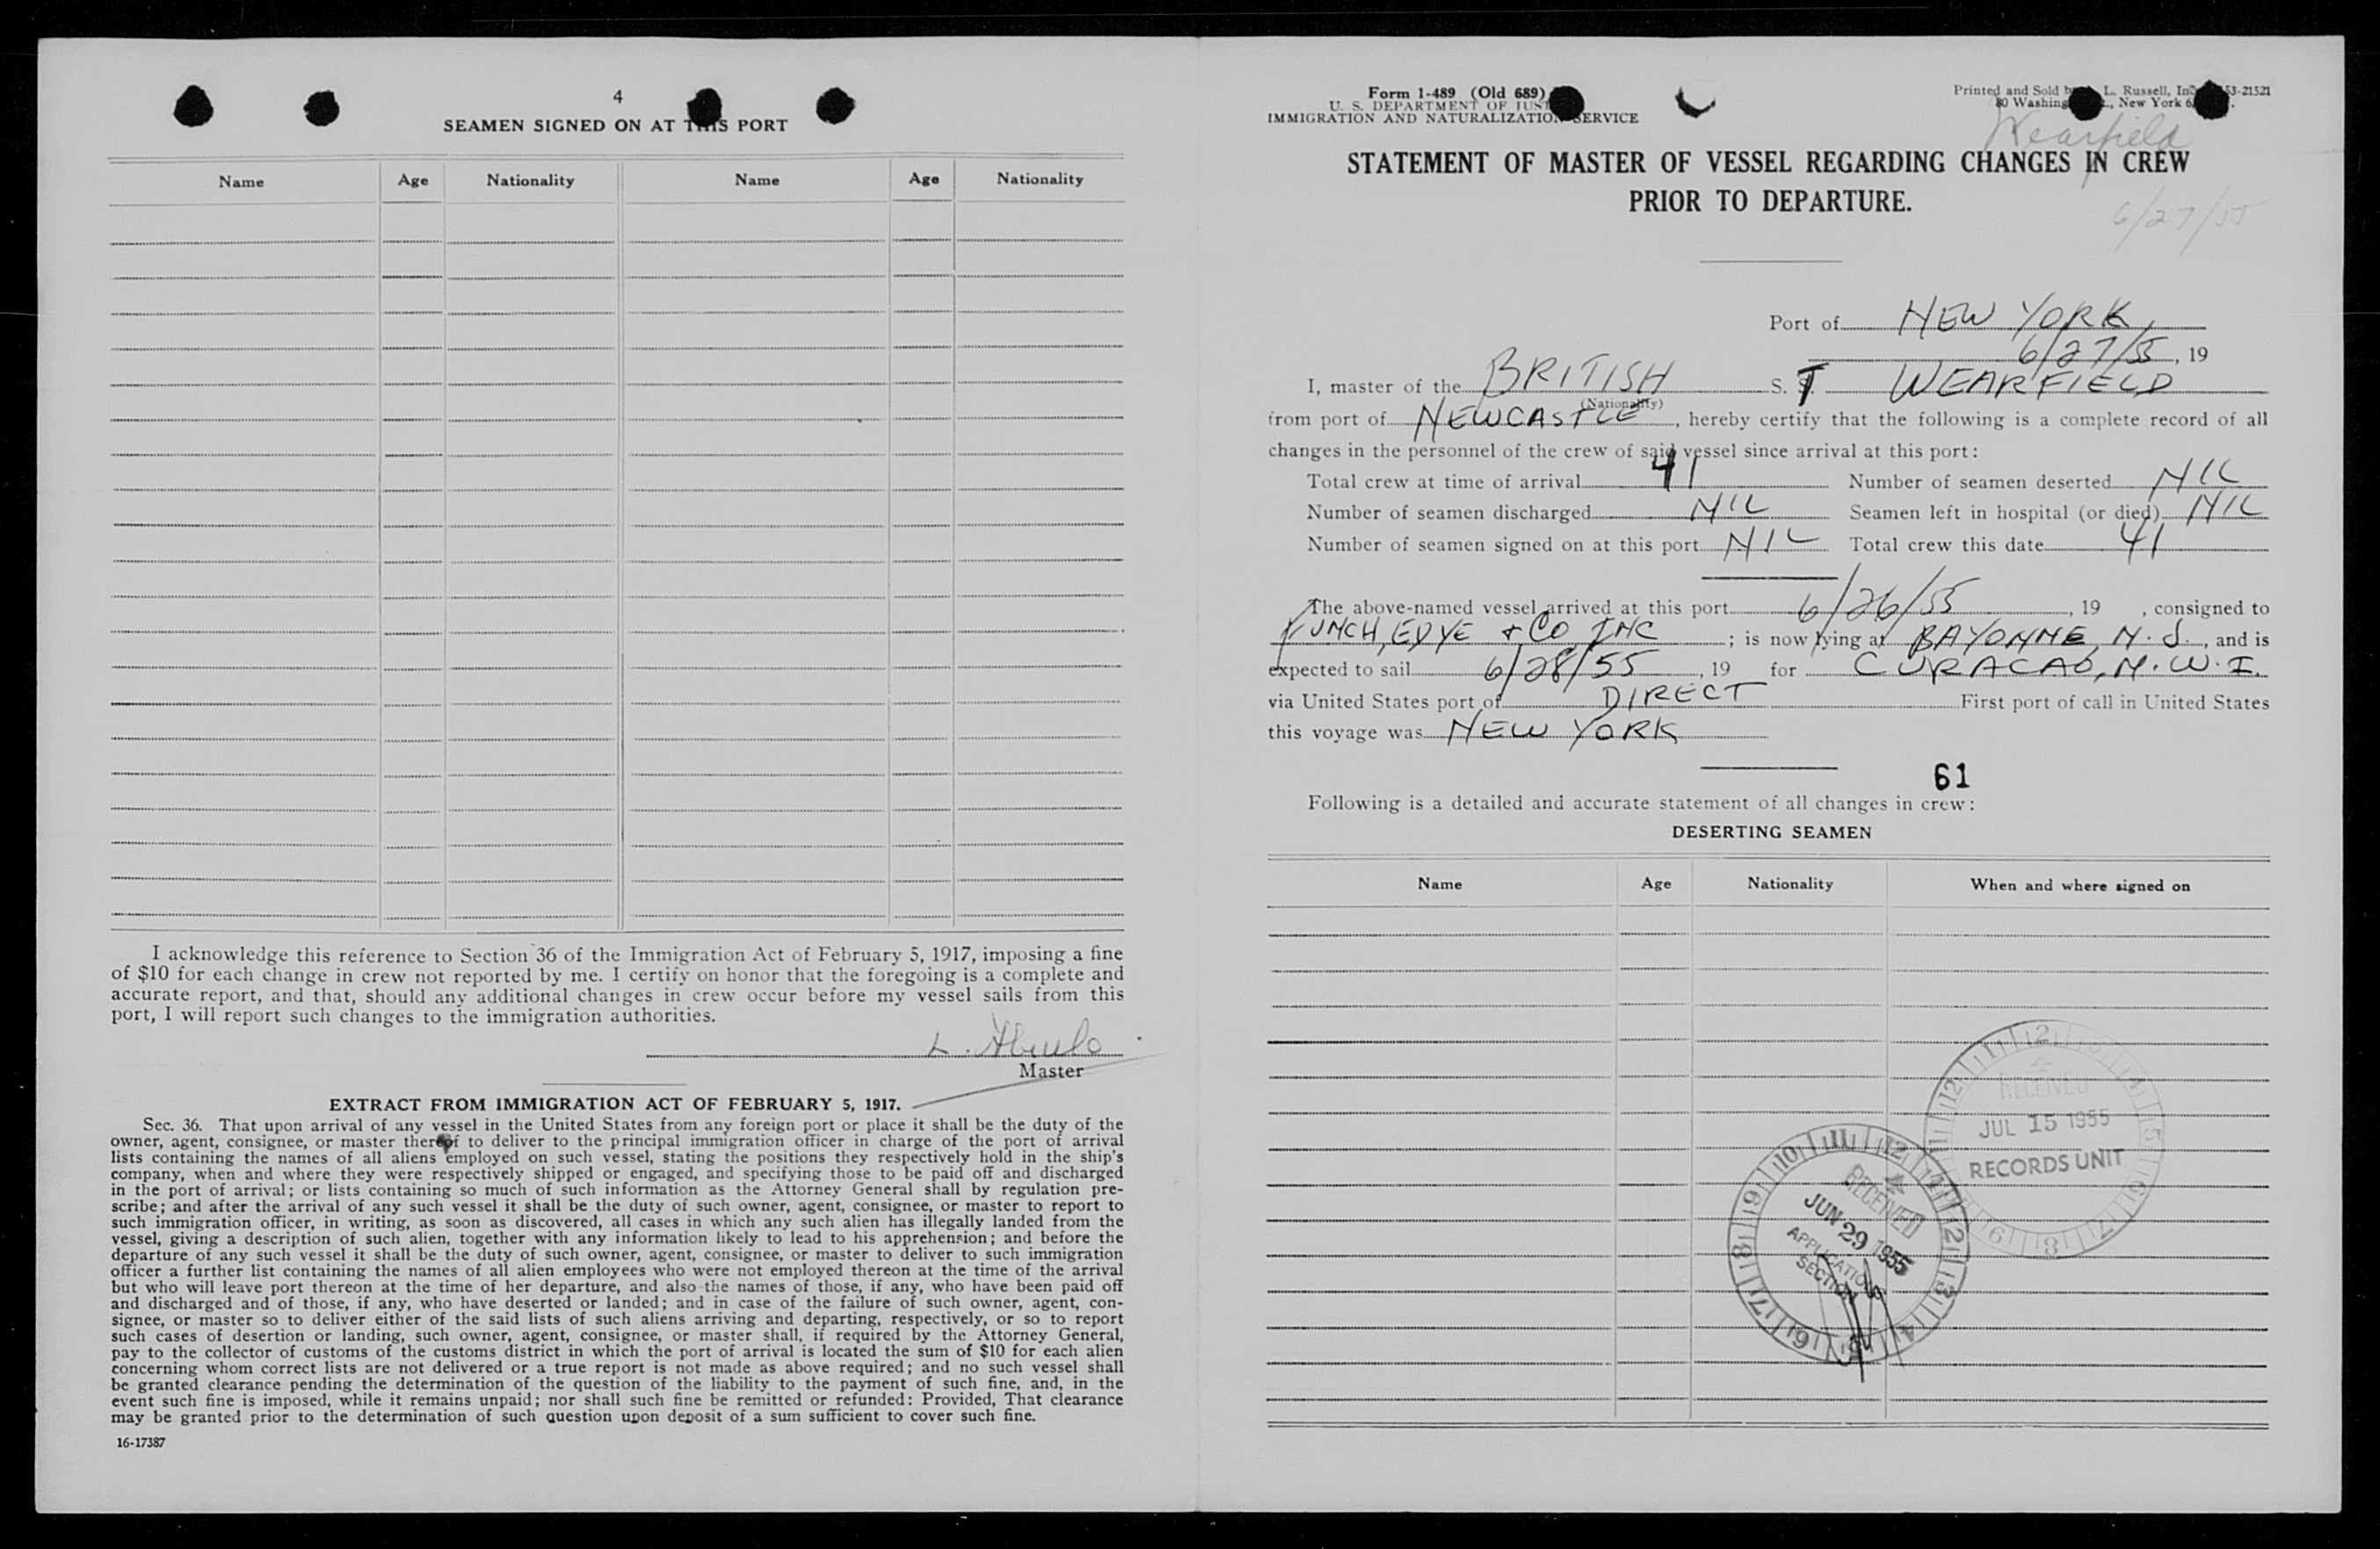 4
SEAMEN SIGNED ON AT THIS PORT
Name Age Nationality Name Age Nationality
I acknowledge this reference to Section 36 of the Immigration Act of February 5, 1917, imposing a fine
of $10 for each change in crew not reported by me. I certify on honor that the foregoing is a complete and
accurate report, and that, should any additional changes in crew occur before my vessel sails from this
port, I will report such changes to the immigration authorities.
L.
Master
EXTRACT FROM IMMIGRATION ACT OF FEBRUARY 5, 1917.
Sec. 36. That upon arrival of any vessel in the United States from any foreign port or place it shall be the duty of the
owner, agent, consignee, or master thereof to deliver to the principal immigration officer in charge of the port of arrival
lists containing the names of all aliens employed on such vessel, stating the positions they respectively hold in the ship's
company, when and where they were respectively shipped or engaged, and specifying those to be paid off and discharged
in the port of arrival; or lists containing so much of such information as the Attorney General shall by regulation pre-
scribe; and after the arrival of any such vessel it shall be the duty of such owner, agent, consignee, or master to report to
such immigration officer, in writing, as soon as discovered, all cases in which any such alien has illegally landed from the
vessel, giving a description of such alien, together with any information likely to lead to his apprehension; and before the
departure of any such vessel it shall be the duty of such owner, agent, consignee, or master to deliver to such immigration
officer a further list containing the names of all alien employees who were not employed thereon at the time of the arrival
but who will leave port thereon at the time of her departure, and also the names of those, if any, who have been paid off
and discharged and of those, if any, who have deserted or landed; and in case of the failure of such owner, agent, con-
signee, or master so to deliver either of the said lists of such aliens arriving and departing, respectively, or so to report
such cases of desertion or landing, such owner, agent, consignee, or master shall, if required by the Attorney General,
pay to the collector of customs of the customs district in which the port of arrival is located the sum of $10 for each alien
concerning whom correct lists are not delivered or a true report is not made as above required; and no such vessel shall
be granted clearance pending the determination of the question of the liability to the payment of such fine, and, in the
event such fine is imposed, while it remains unpaid; nor shall such fine be remitted or refunded: Provided, That clearance
may be granted prior to the determination of such question upon deposit of a sum sufficient to cover such fine.
16-17387
Form 1-489 (Old 689)
U. S. DEPARTMENT OF JUST
IMMIGRATION AND NATURALIZATION SERVICE
Printed and Sold by L. Russell, Inc. 53-21521
80 Washing , New York 6
Wearfield
STATEMENT OF MASTER OF VESSEL REGARDING CHANGES IN CREW
PRIOR TO DEPARTURE.
6/27/55
Port of NEW YORK,
6/27/55, 19
I, master of the BRITISH S. T WEARFIELD
(Nationality)
from port of NEWCASTLE, hereby certify that the following is a complete record of all
changes in the personnel of the crew of said vessel since arrival at this port:
Total crew at time of arrival 41 Number of seamen deserted NIL
Number of seamen discharged NIL Seamen left in hospital (or died) NIL
Number of seamen signed on at this port NIL Total crew this date 41
The above-named vessel arrived at this port 6/26/55, 19 , consigned to
FUNCH, EDYE & CO INC; is now lying at BAYONNE, N. J., and is
expected to sail 6/28/55, 19 for CURACAO, N. W. I.
via United States port of DIRECT First port of call in United States
this voyage was NEW YORK
61
Following is a detailed and accurate statement of all changes in crew:
DESERTING SEAMEN
Name Age Nationality When and where signed on
RECEIVED
JUL 15 1955
RECORDS UNIT
RECEIVED
JUN 29 1955
APPLICATION
SECTION